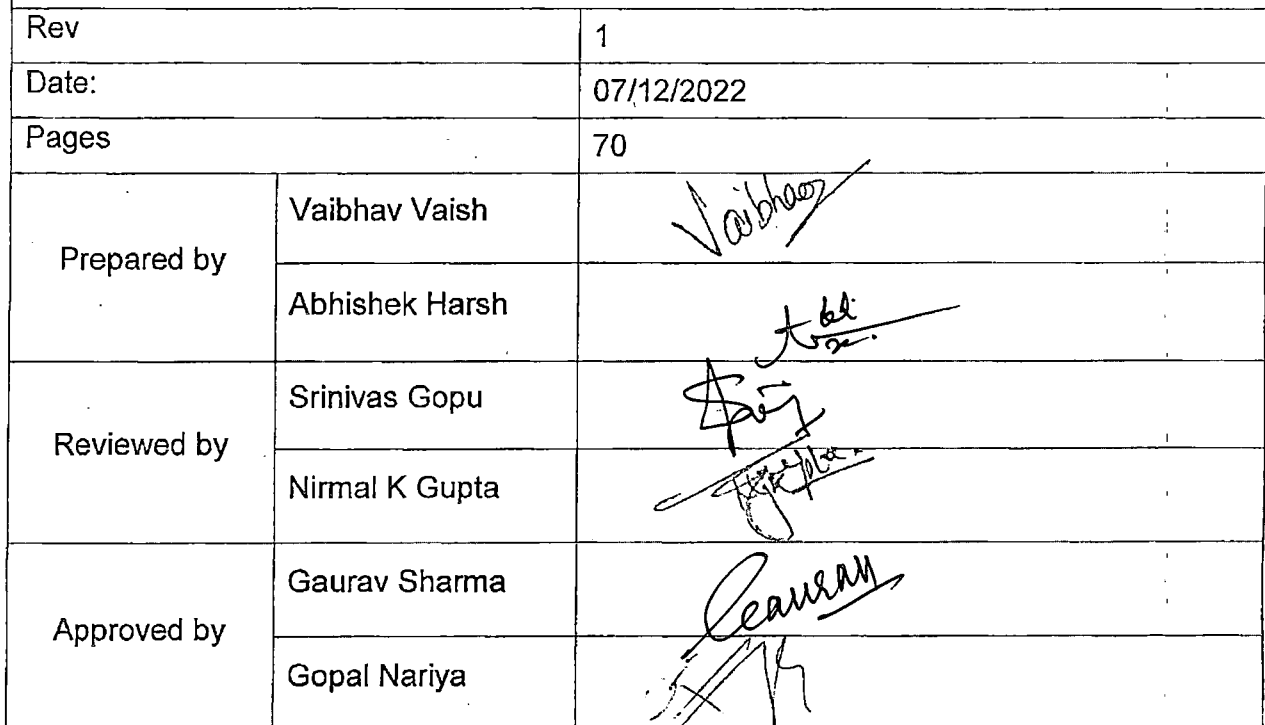 Rev 1
Date: 07/12/2022
Pages 70
Prepared by
Vaibhav Vaish Vaibhav
Abhishek Harsh
Reviewed by
Srinivas Gopu
Nirmal K Gupta
Approved by
Gaurav Sharma Gaurav
Gopal Nariya